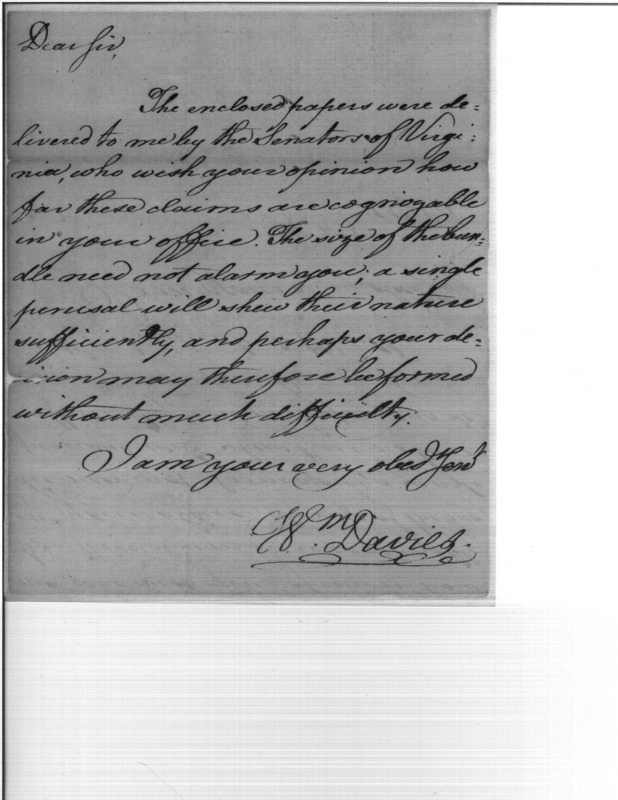 Dear Sir,
The enclosed papers were de=
livered to me by the Senators of Virgi=
nia, who wish your opinion how
far these claims are cognizable
in your office. The size of the bun=
dle need not alarm you; a single
perusal will shew their nature
sufficiently, and perhaps your de=
cision may therefore be formed
without much difficulty.
I am your very obedt Servt
Wm Davies.